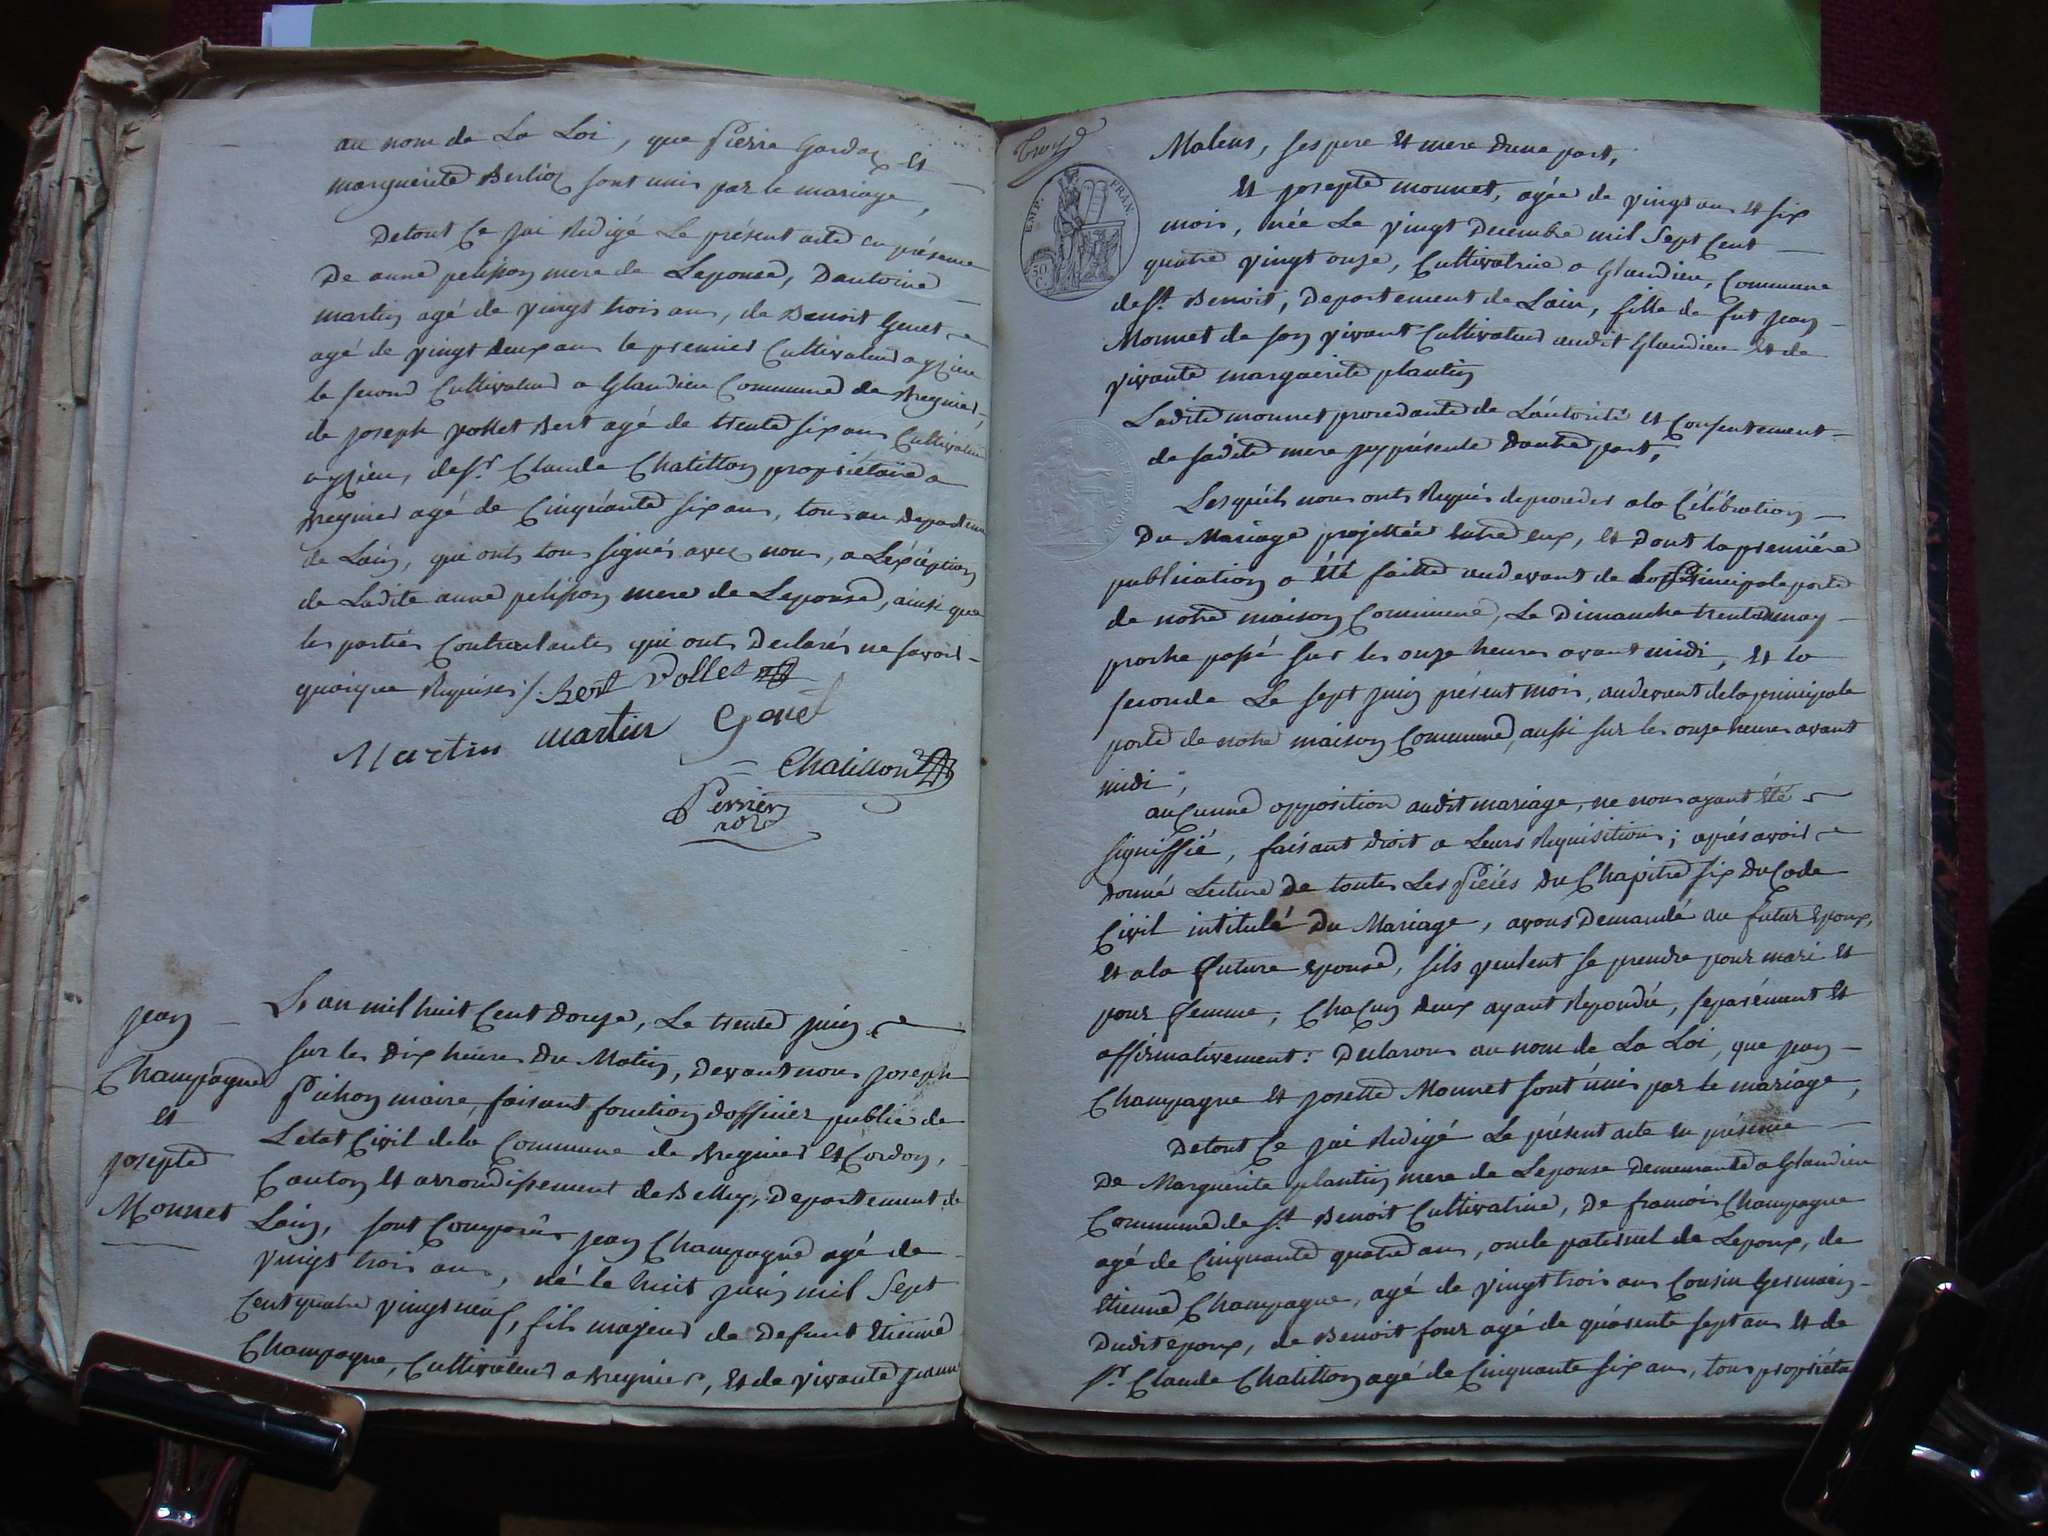 au nom de La Loi, que Pierre Gardaz Et
marguerite Berlioz sont unis par le mariage,
Detout Ce jai Redigé Le présent acte en présence
De anne pelisson mere de Lepouse, Dantoine
martin agé de vingt trois ans, de Benoit Genet
agé de vingt deux ans le premier Cultivateur a yzieu
le second Cultivateur a Glandieu Commune de Bregnier,
de joseph vollet Bert agé de trente six ans Cultivateur
a yzieu, de Sr. Claude Chatillon propriétaire a
Bregnier agé de Cinquante six ans, tous au departement
de Lain, qui ont tous signés avec nous, a Lexception
de Ladite anne pelisson mere de Lepouse, ainsi que
les parties Contractantes qui ont Declarés ne savoir
quoique Requises /. Bert vollet
Martin martin Genet
Chatillon
Perrier
jean
Champagne
et
josepte
Monnet
L'an mil huit Cent douze, Le trente juin
sur les dix heures Du Matin, Devant nous joseph
Pichon maire, faisant fonction dofficier public de
Letat Civil dela Commune de Bregnier et Cordon,
Canton Et arrondissement de Belley, Departement de
Lain, sont Comparus jean Champagne agé de
vingt trois ans, né le huit juin mil Sept
Cent quatre vingt neuf, fils majeur de Defunt Etienne
Champagne, Cultivateur a Bregnier, Et de vivante jeanne
EMP. FRAN.
50 C.
Malens, ses pere Et mere dune part,
Et josepte monnet, agée de vingt ans Et six
mois, née Le vingt Decembre mil Sept Cent
quatre vingt onze, Cultivatrice a Glandieu, Commune
de St. Benoit, Departement de Lain, fille de fut jean
Monnet de son vivant Cultivateur audit Glandieu Et de
vivante marguerite plantin
Ladite monnet procedante de Lautorité Et Consentement
de sadite mere jcy présente Dautre part,
Lesquels nous ont Requis deproceder ala Célébration
Du Mariage projettée Entre eux, Et dont la premiére
publication a Eté faitte audevant de la Principale porte
de notre maison Commune, Le Dimanche trente may
proche passé sur les onze heures avant midi, Et la
seconde Le sept juin présent mois, audevant dela principale
porte de notre maison Commune, aussi sur les onze heures avant
midi;
auCunne opposition audit mariage, ne nous ayant Eté
signiffié, faisant Droit a Leurs Requisitions; aprés avoir
donné Lecture de toutes Les Piéces Du Chapitre six du Code
Civil intitulé Du Mariage, avons Demandé au futur Epoux,
Et ala future Epouse, sils veulent se prendre pour mari Et
pour femme, Chacun deux ayant Repondu, separément Et
affirmativement: Declarons au nom de La Loi, que jean
Champagne Et josette Monnet sont unis par le mariage,
Detout Ce jai Redigé Le présent acte en présence
De Marguerite plantin mere de Lepouse Demeurante a Glandieu
Commune de St. Benoit Cultivatrice, De francois Champagne
agé de Cinquante quatre ans, oncle paternel de Lepoux, de
Etienne Champagne, agé de vingt trois ans Cousin Germain
Dudit epoux, de Benoit four agé de quarente sept ans Et de
Sr. Claude Chatillon agé de Cinquante six ans, tous propriétaires